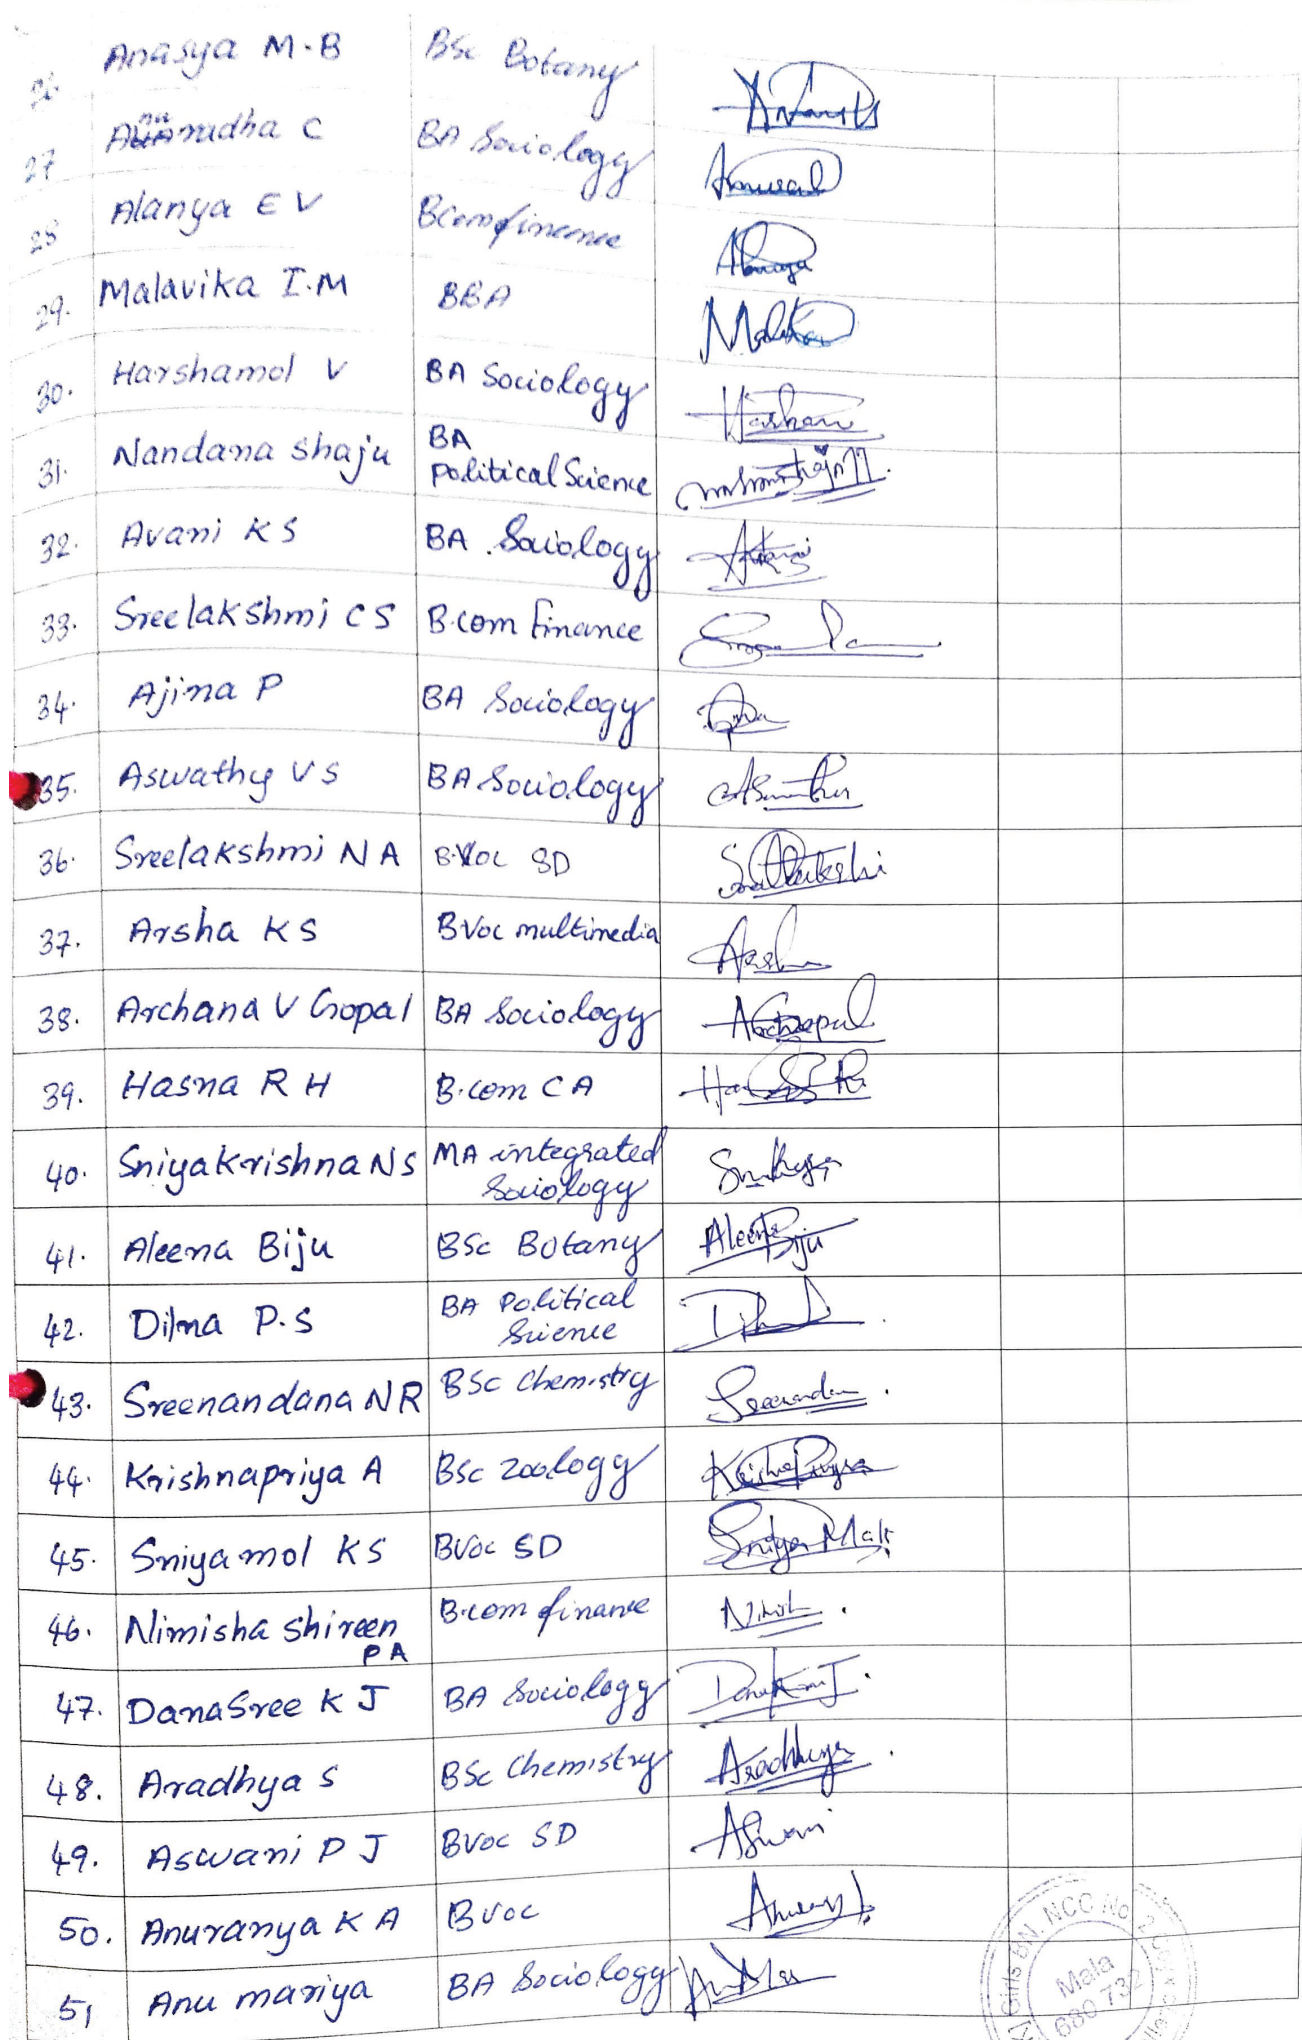 26. Anasya M.B BSc Botany
27 Anuradha C BA Sociology
28 Alanya E V BCom finance
29. Malavika I.M BBA
30. Harshamol V BA Sociology
31. Nandana shaju BA Political Science
32. Avani K S BA Sociology
33. Sreelakshmi C S B.com Finance
34. Ajina P BA Sociology
35. Aswathy V S BA Sociology
36. Sreelakshmi N A B.Voc SD
37. Arsha K S BVoc multimedia
38. Archana V Gopal BA Sociology
39. Hasna R H B.com CA
40. Sniyakrishna N S MA integrated Sociology
41. Aleena Biju BSc Botany Aleena Biju
42. Dilna P.S BA Political Science
43. Sreenandana N R BSc Chemistry
44. Krishnapriya A BSc Zoology
45. Sniyamol K S BVoc SD
46. Nimisha shireen P A B.com finance
47. DanaSree K J BA Sociology
48. Aradhya S BSc Chemistry Aradhya
49. Aswani P J BVoc SD Aswani
50. Anuranya K A BVoc
51 Anu mariya BA Sociology
Girls BN NCC No. 2
Mala
680 732